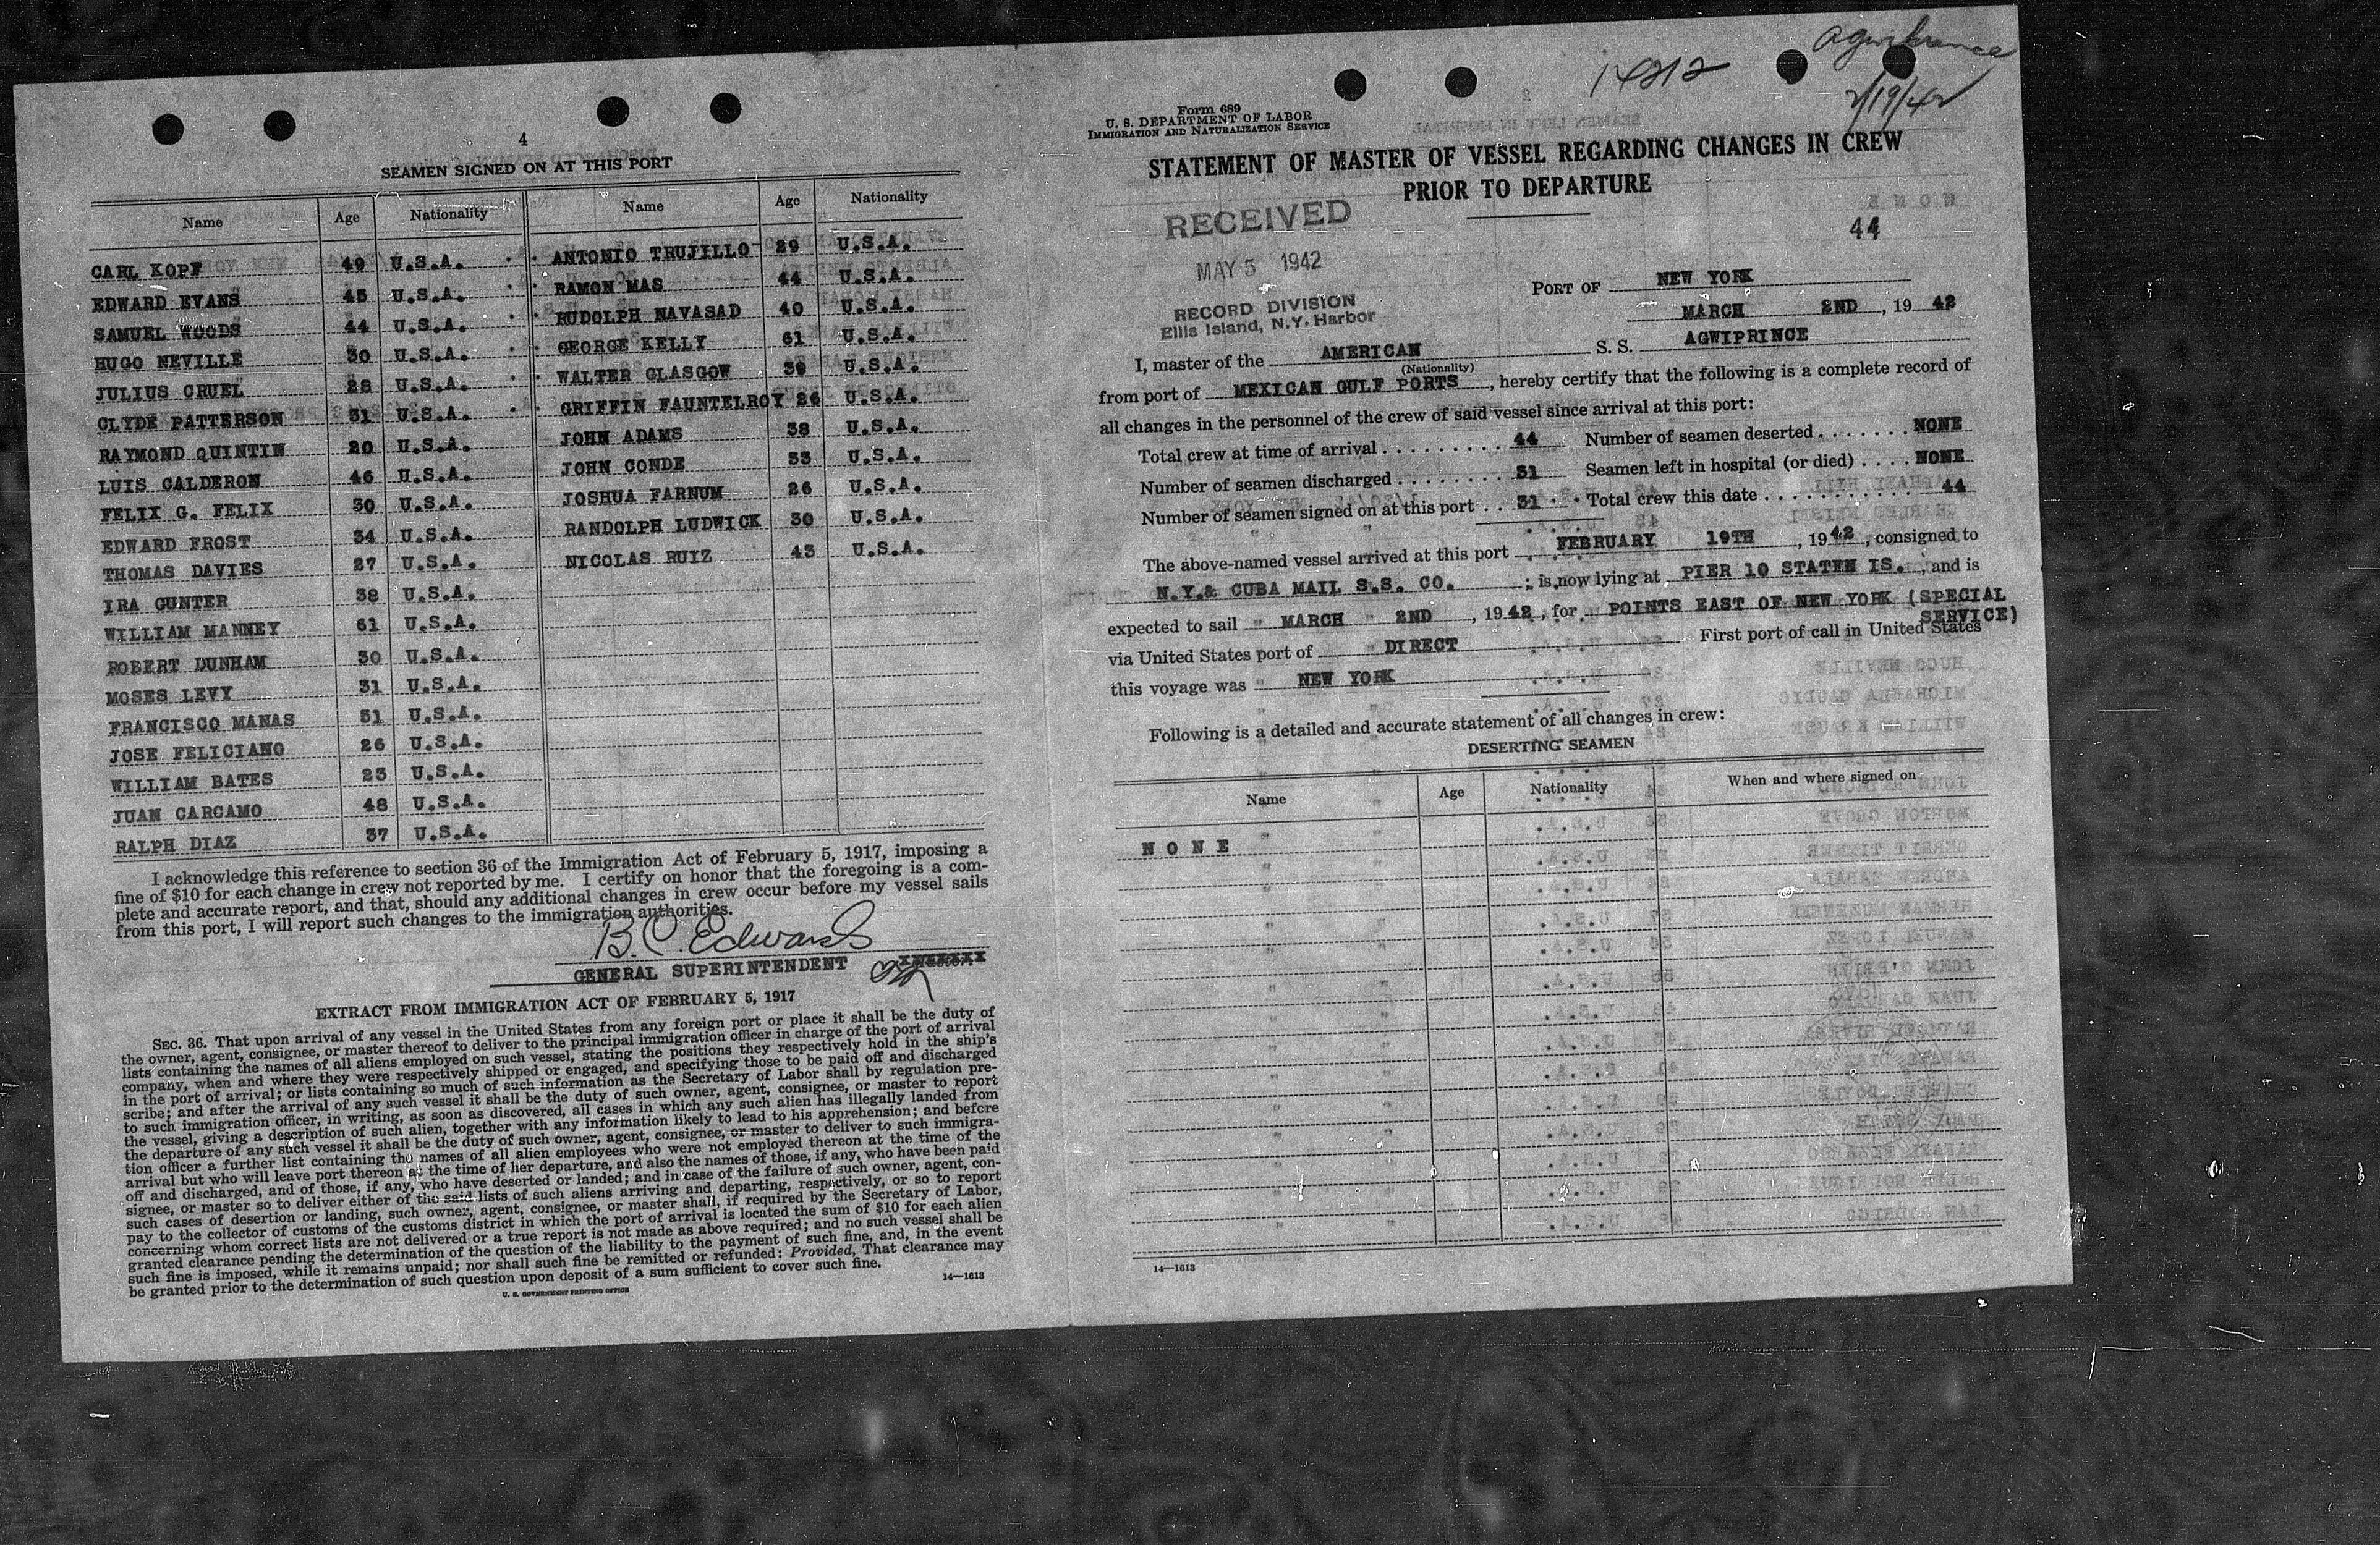 4
SEAMEN SIGNED ON AT THIS PORT
Name Age Nationality Name Age Nationality
CARL KOPF 49 U.S.A. ANTONIO TRUJILLO 29 U.S.A.
EDWARD EVANS 45 U.S.A. RAMON MAS 44 U.S.A.
SAMUEL WOODS 44 U.S.A. RUDOLPH NAVASAD 40 U.S.A.
HUGO NEVILLE 30 U.S.A. GEORGE KELLY 61 U.S.A.
JULIUS CRUEL 28 U.S.A. WALTER GLASGOW 39 U.S.A.
CLYDE PATTERSON 31 U.S.A. GRIFFIN FAUNTELROY 26 U.S.A.
RAYMOND QUINTIN 20 U.S.A. JOHN ADAMS 38 U.S.A.
LUIS CALDERON 46 U.S.A. JOHN CONDE 33 U.S.A.
FELIX G. FELIX 30 U.S.A. JOSHUA FARNUM 26 U.S.A.
EDWARD FROST 34 U.S.A. RANDOLPH LUDWICK 30 U.S.A.
THOMAS DAVIES 27 U.S.A. NICOLAS RUIZ 43 U.S.A.
IRA GUNTER 38 U.S.A.
WILLIAM MANNEY 61 U.S.A.
ROBERT DUNHAM 30 U.S.A.
MOSES LEVY 31 U.S.A.
FRANCISCO MANAS 51 U.S.A.
JOSE FELICIANO 26 U.S.A.
WILLIAM BATES 23 U.S.A.
JUAN CARCAMO 48 U.S.A.
RALPH DIAZ 37 U.S.A.
I acknowledge this reference to section 36 of the Immigration Act of February 5, 1917, imposing a
fine of $10 for each change in crew not reported by me. I certify on honor that the foregoing is a com-
plete and accurate report, and that, should any additional changes in crew occur before my vessel sails
from this port, I will report such changes to the immigration authorities.
B.C. Edwards
GENERAL SUPERINTENDENT
EXTRACT FROM IMMIGRATION ACT OF FEBRUARY 5, 1917
SEC. 36. That upon arrival of any vessel in the United States from any foreign port or place it shall be the duty of
the owner, agent, consignee, or master thereof to deliver to the principal immigration officer in charge of the port of arrival
lists containing the names of all aliens employed on such vessel, stating the positions they respectively hold in the ship's
company, when and where they were respectively shipped or engaged, and specifying those to be paid off and discharged
in the port of arrival; or lists containing so much of such information as the Secretary of Labor shall by regulation pre-
scribe; and after the arrival of any such vessel it shall be the duty of such owner, agent, consignee, or master to report
to such immigration officer, in writing, as soon as discovered, all cases in which any such alien has illegally landed from
the vessel, giving a description of such alien, together with any information likely to lead to his apprehension; and before
the departure of any such vessel it shall be the duty of such owner, agent, consignee, or master to deliver to such immigra-
tion officer a further list containing the names of all alien employees who were not employed thereon at the time of the
arrival but who will leave port thereon at the time of her departure, and also the names of those, if any, who have been paid
off and discharged, and of those, if any, who have deserted or landed; and in case of the failure of such owner, agent, con-
signee, or master so to deliver either of the said lists of such aliens arriving and departing, respectively, or so to report
such cases of desertion or landing, such owner, agent, consignee, or master shall, if required by the Secretary of Labor,
pay to the collector of customs of the customs district in which the port of arrival is located the sum of $10 for each alien
concerning whom correct lists are not delivered or a true report is not made as above required; and no such vessel shall be
granted clearance pending the determination of the question of the liability to the payment of such fine, and, in the event
such fine is imposed, while it remains unpaid; nor shall such fine be remitted or refunded: Provided, That clearance may
be granted prior to the determination of such question upon deposit of a sum sufficient to cover such fine.
14—1613
U. S. GOVERNMENT PRINTING OFFICE
Agwiprince
14212
2/19/42
Form 689
U. S. DEPARTMENT OF LABOR
IMMIGRATION AND NATURALIZATION SERVICE
STATEMENT OF MASTER OF VESSEL REGARDING CHANGES IN CREW
PRIOR TO DEPARTURE
RECEIVED
MAY 5 1942
RECORD DIVISION
Ellis Island, N.Y. Harbor
44
PORT OF NEW YORK
MARCH 2ND, 19 42
I, master of the AMERICAN S. S. AGWIPRINCE
(Nationality)
from port of MEXICAN GULF PORTS, hereby certify that the following is a complete record of
all changes in the personnel of the crew of said vessel since arrival at this port:
Total crew at time of arrival 44 Number of seamen deserted NONE
Number of seamen discharged 31 Seamen left in hospital (or died) NONE
Number of seamen signed on at this port 31 Total crew this date 44
The above-named vessel arrived at this port FEBRUARY 19TH, 19 42, consigned to
N.Y.& CUBA MAIL S.S. CO.; is now lying at PIER 10 STATEN IS., and is
expected to sail MARCH 2ND, 19 42, for POINTS EAST OF NEW YORK (SPECIAL
SERVICE)
via United States port of DIRECT First port of call in United States
this voyage was NEW YORK
Following is a detailed and accurate statement of all changes in crew:
DESERTING SEAMEN
Name Age Nationality When and where signed on
NONE
14—1613